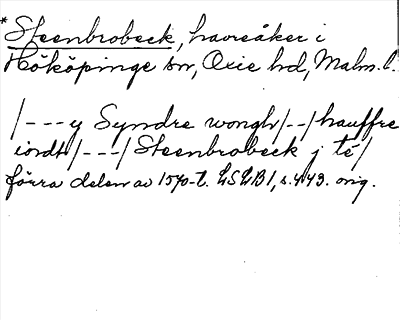 *Steenbrobeck, havreåker i
Hököpinge sn, Oxie hd, Malm. l.
/---y Syndre wongh/--/hauffre
iordt/---/Steenbrobeck j té/
förra delen av 1570-t. LSLB1, s. 443. orig.